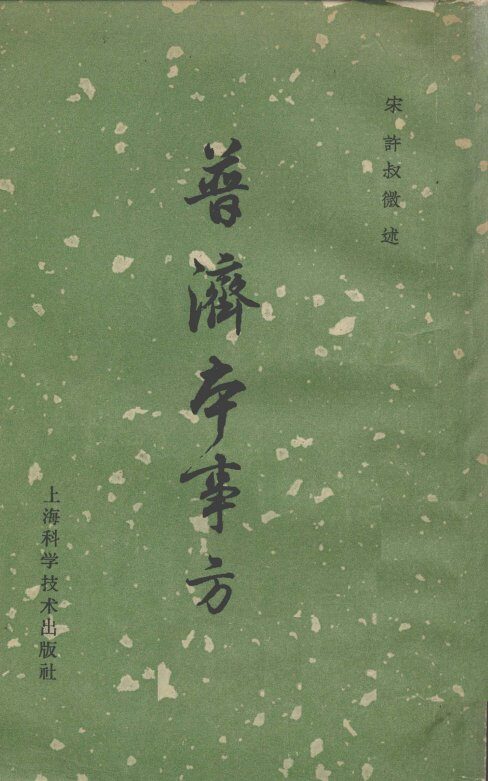 宋 許叔微 述
普濟本事方
上海科学技术出版社